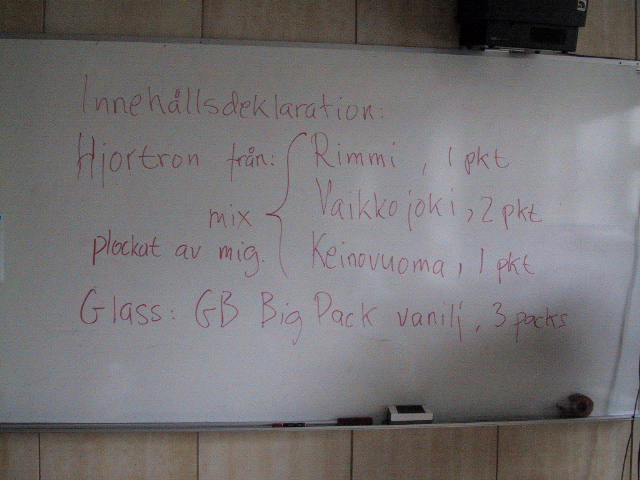 Innehållsdeklaration:
Hjortron från: { Rimmi, 1 pkt
mix Vaikkojoki, 2 pkt
plockat av mig. Keinovuoma, 1 pkt
Glass: GB Big Pack vanilj, 3 packs